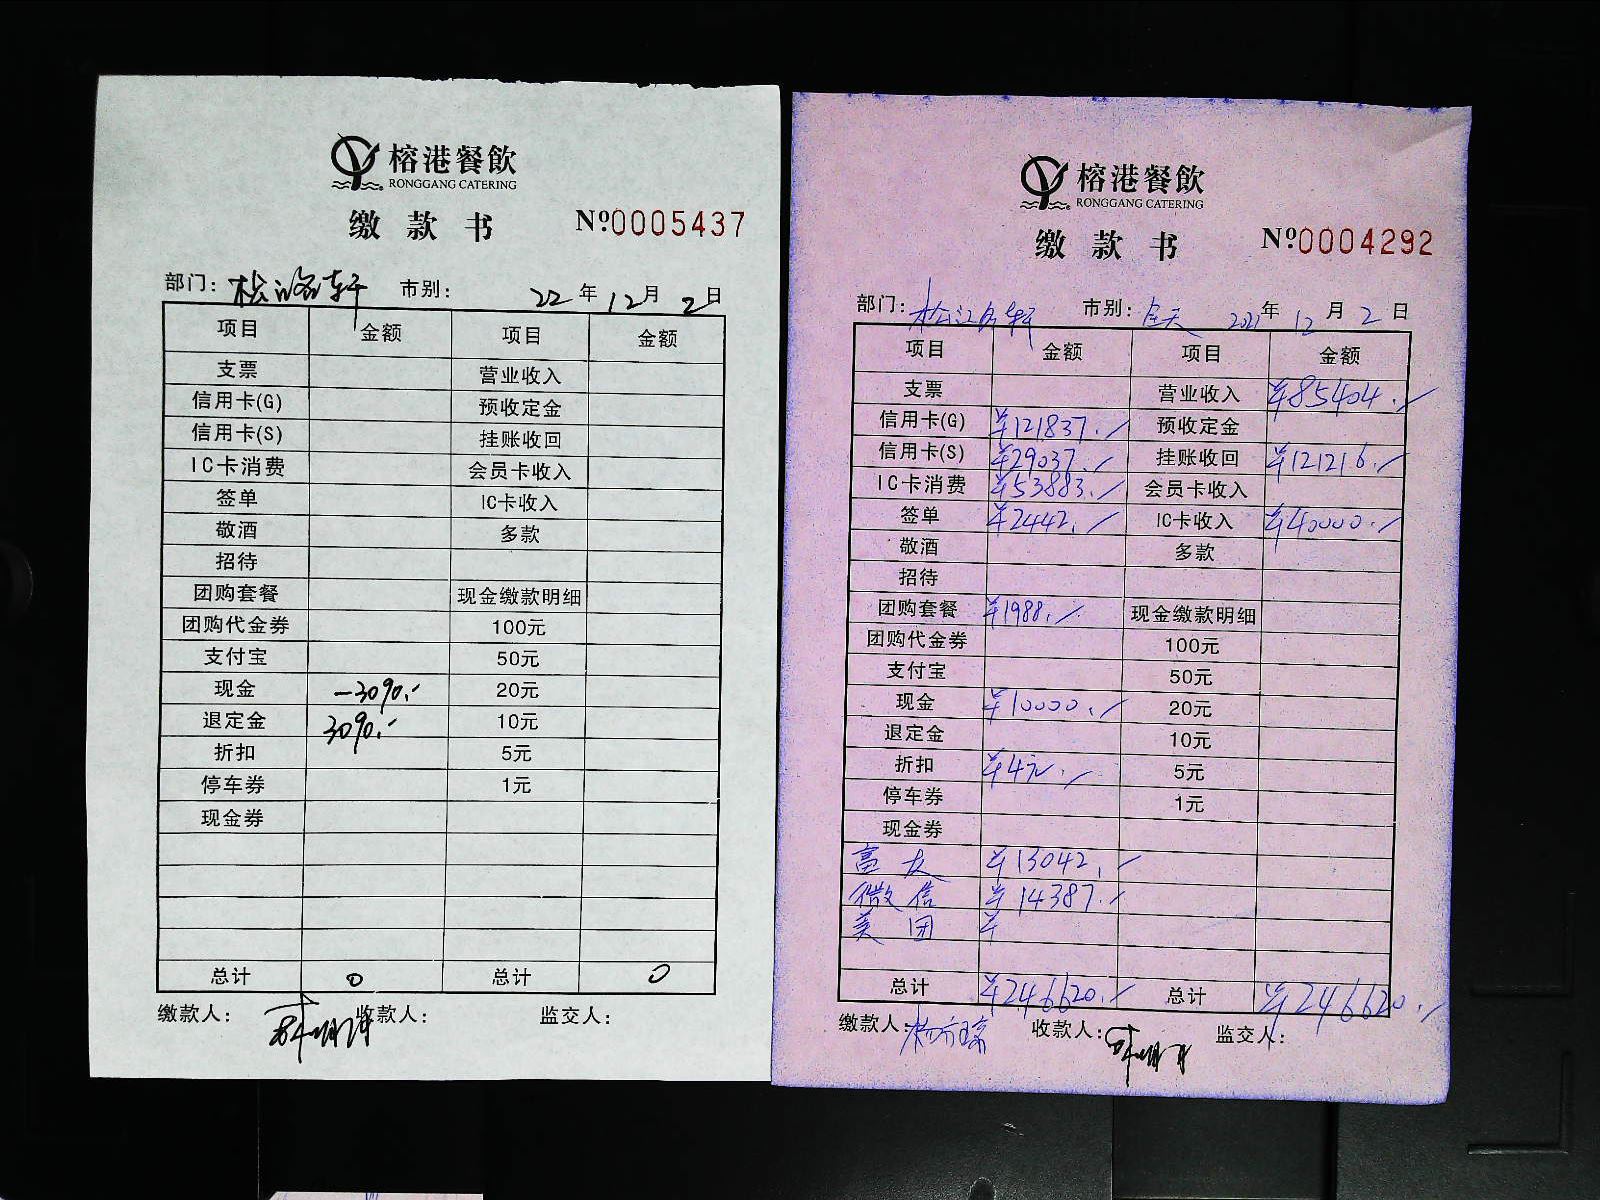 榕港餐飲
RONGGANG CATERING
缴款书
Nº.0005437
部门: 市别: 22年12月2日
项目 金额 项目 金额
支票 营业收入
信用卡(G) 预收定金
信用卡(S) 挂账收回
IC卡消费 会员卡收入
签单 IC卡收入
敬酒 多款
招待
团购套餐 现金缴款明细
团购代金券 100元
支付宝 50元
现金 -3090.- 20元
退定金 3090.- 10元
折扣 5元
停车券 1元
现金券
总计 0 总计 0
缴款人: 收款人: 监交人:
榕港餐飲
RONGGANG CATERING
缴款书
Nº.0004292
部门: 市别:全天 2021年12月2日
项目 金额 项目 金额
支票 营业收入 ¥85404.
信用卡(G) ¥121837. 预收定金
信用卡(S) ¥29037. 挂账收回 ¥121216.
IC卡消费 ¥53883. 会员卡收入
签单 ¥2442. IC卡收入 ¥40000.
敬酒 多款
招待
团购套餐 ¥1988. 现金缴款明细
团购代金券 100元
支付宝 50元
现金 ¥10000. 20元
退定金 10元
折扣 5元
停车券 1元
现金券
富友 ¥13042.
微信 ¥14387.
美团 ¥
总计 ¥246620. 总计 ¥246620.
缴款人: 收款人: 监交人: